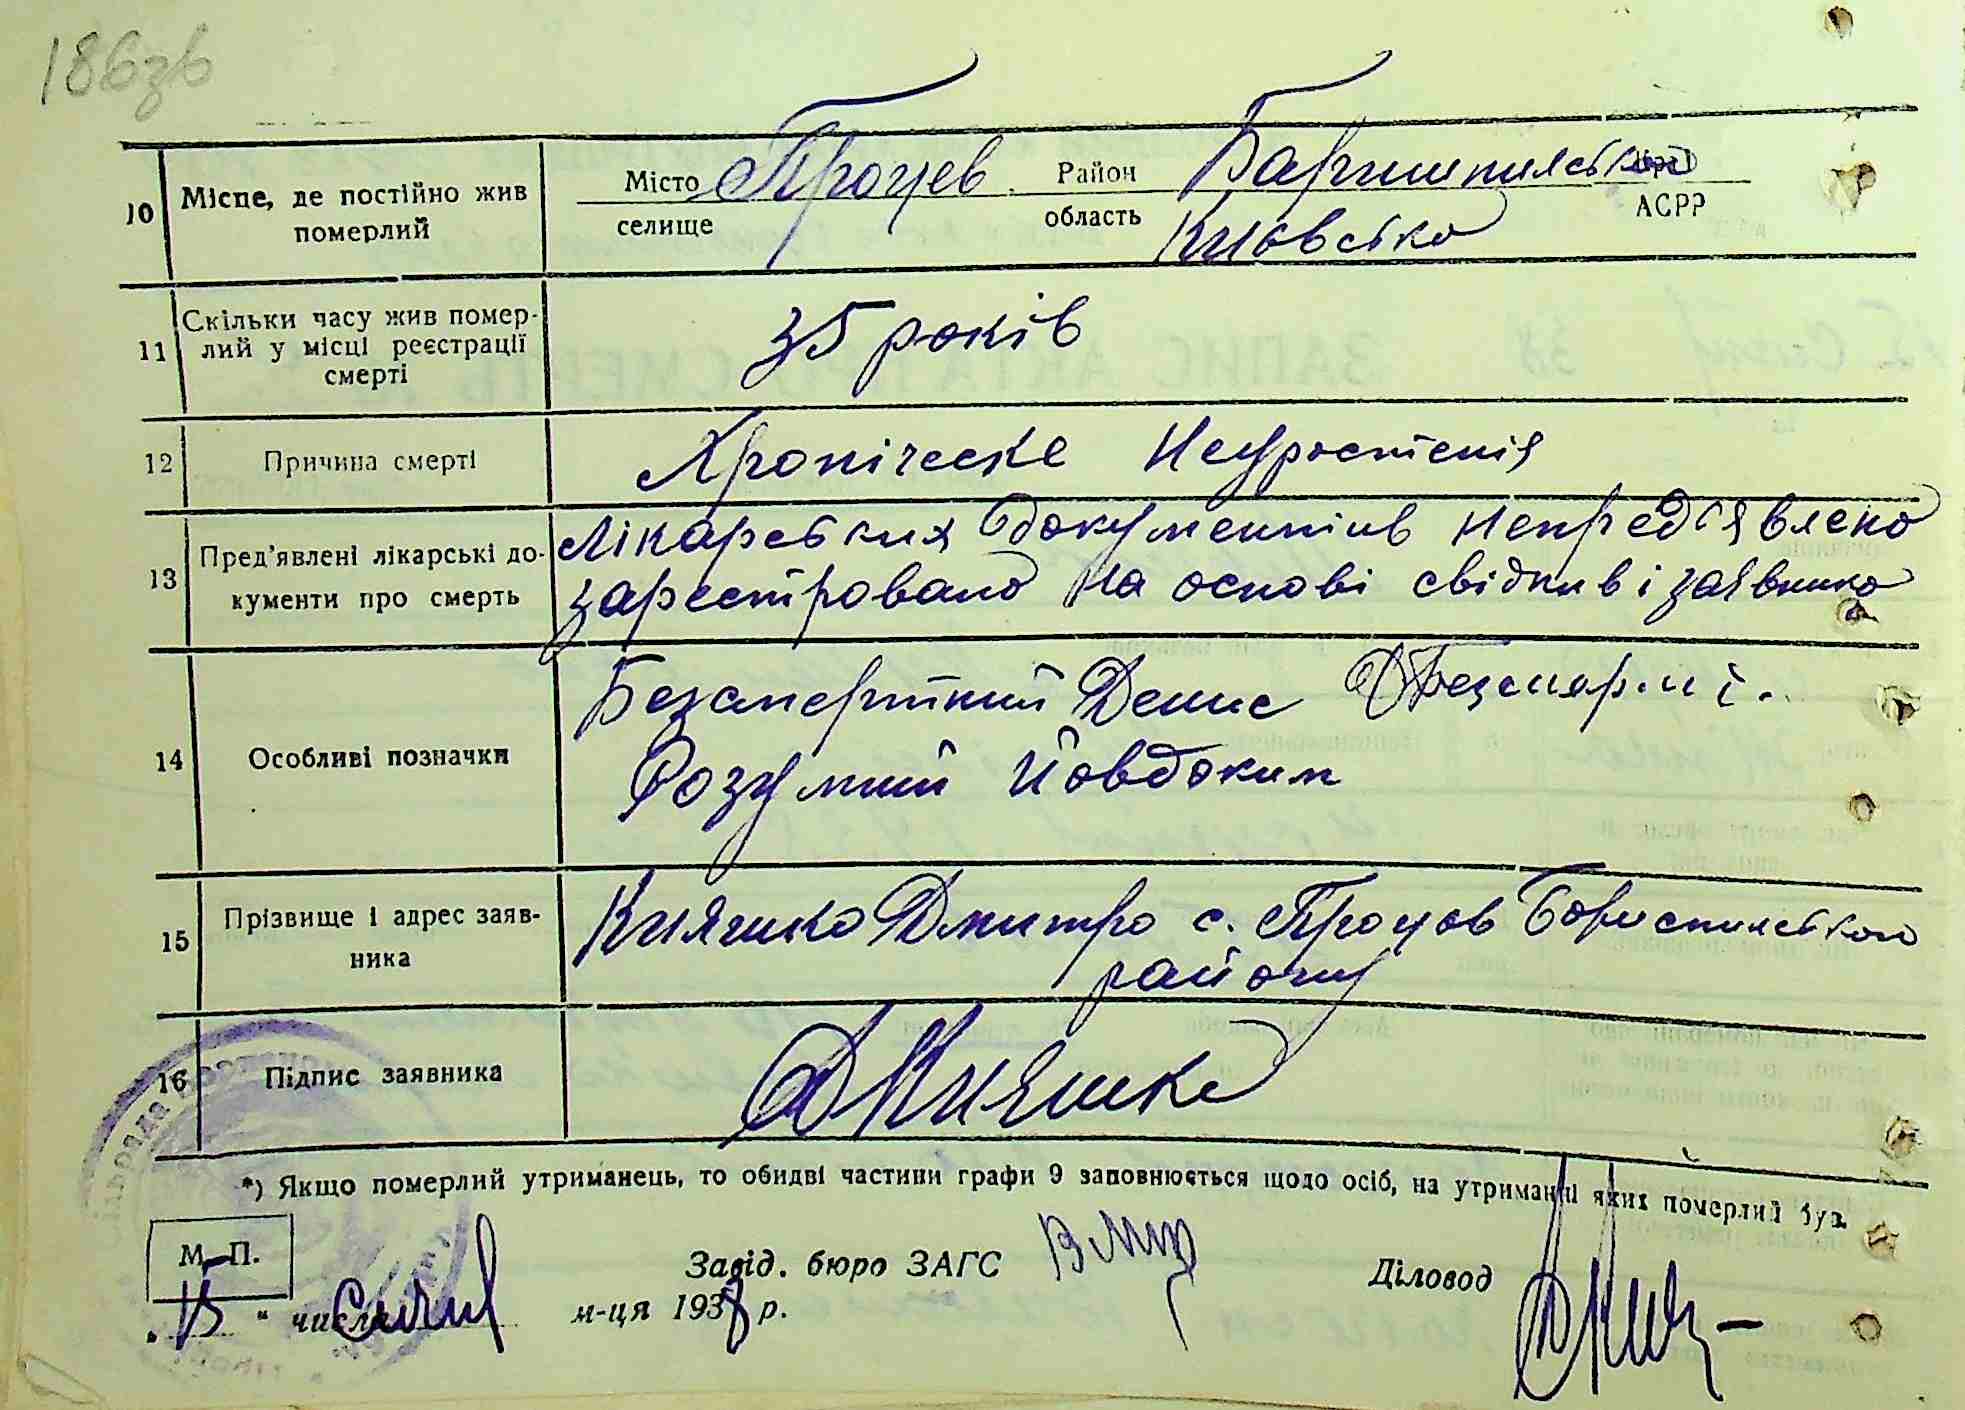 186зв
10 Місце, де постійно жив померлий
Місто селище Процев Район область Баришпилський Київсько АСРР
11 Скільки часу жив помер-
лий у місці реєстрації
смерті
35 років
12 Причина смерті
Хроніческе Неуростенія
13 Пред'явлені лікарські до-
кументи про смерть
Лікарських документів непредявлено
зареєстровано на основі свідків і заявника
14 Особливі позначки
Безсмертний Денис
Розумний Йовдоким
15 Прізвище і адрес заяв-
ника
Княжко Дмитро с. Процов Бориспилського
району
16 Підпис заявника
*) Якщо померлий утриманець, то обидві частини графи 9 заповнюється щодо осіб, на утриманні яких померлий був.
М. П.
Завід. бюро ЗАГС
Діловод
„15" числа Січня м-ця 1938 р.